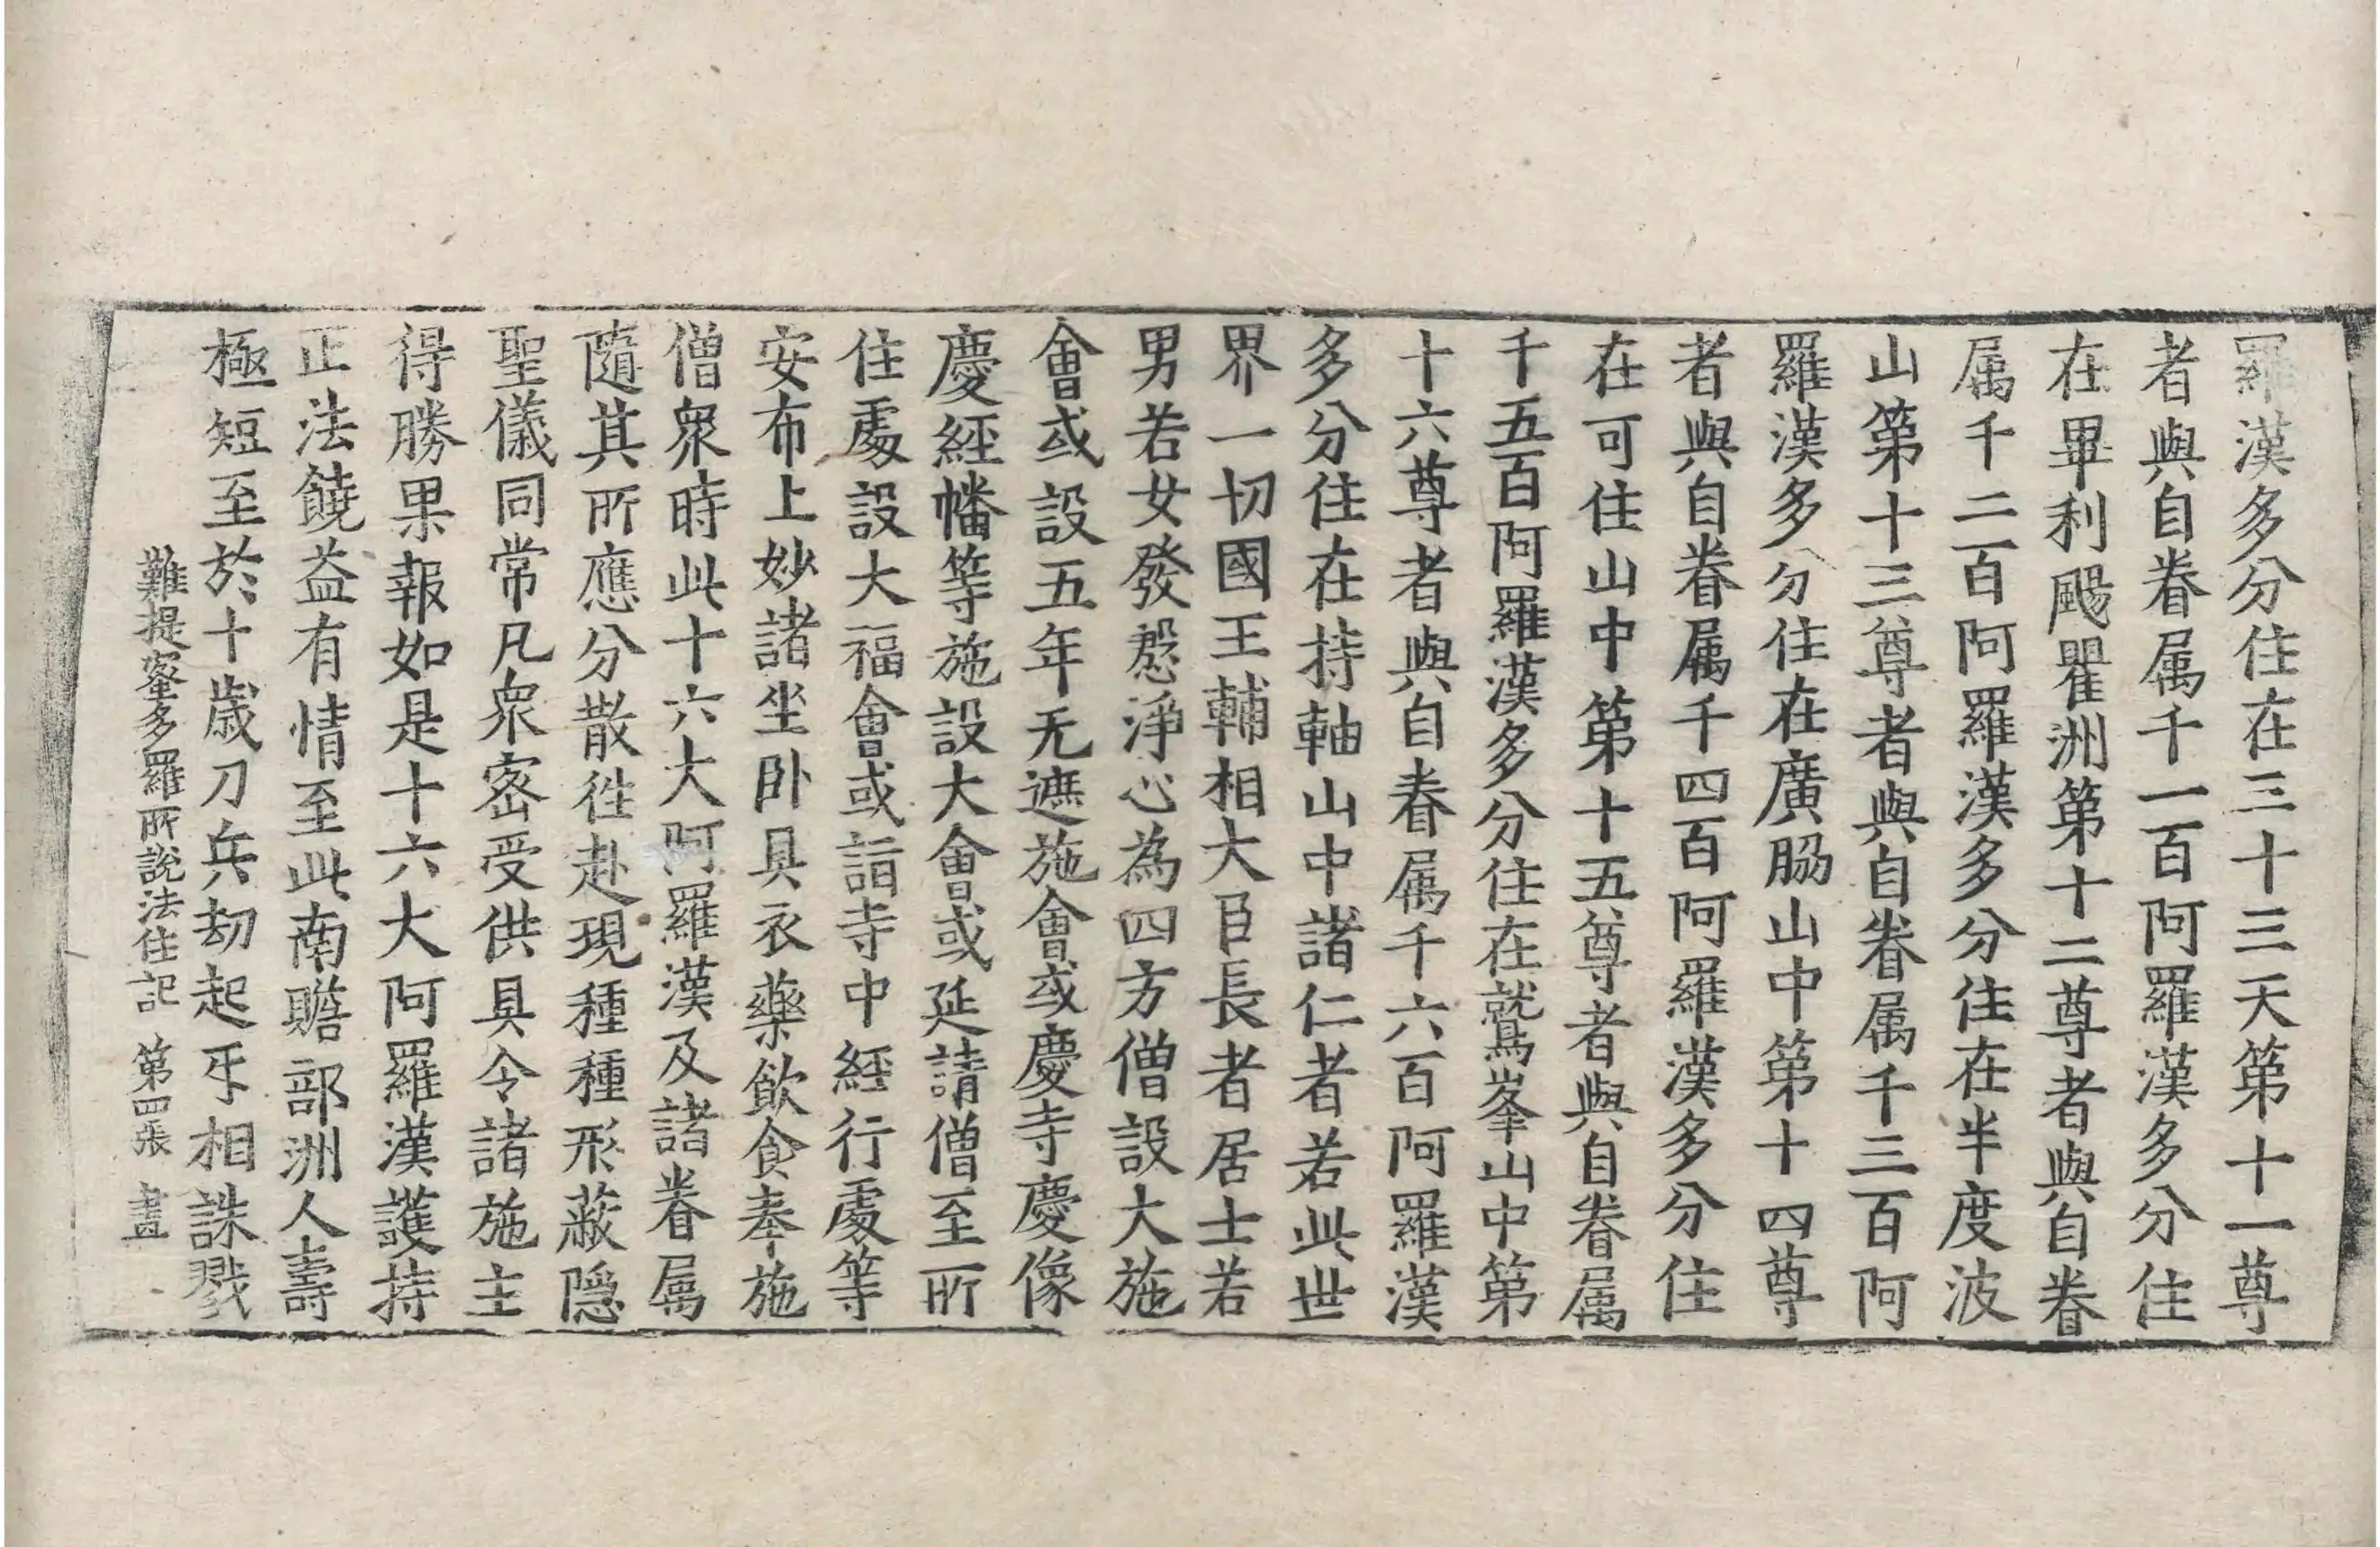 羅漢多分住在三十三天第十一尊
者與自眷属千一百阿羅漢多分住
在畢利颺瞿洲第十二尊者與自眷
属千二百阿羅漢多分住在半度波
山第十三尊者與自眷属千三百阿
羅漢多分住在廣脇山中第十四尊
者與自眷属千四百阿羅漢多分住
在可住山中第十五尊者與自眷属
千五百阿羅漢多分住在鷲峯山中第
十六尊者與自眷属千六百阿羅漢
多分住在持軸山中諸仁者若此世
界一切國王輔相大臣長者居士若
男若女發慇淨心為四方僧設大施
會或設五年无遮施會或慶寺慶像
慶經幡等施設大會或延請僧至所
住處設大福會或詣寺中經行處等
安布上妙諸坐卧具衣藥飲食奉施
僧衆時此十六大阿羅漢及諸眷属
隨其所應分散往赴現種種形蔽隠
聖儀同常凡衆密受供具令諸施主
得勝果報如是十六大阿羅漢護持
正法饒益有情至此南贍部洲人壽
極短至於十歳刀兵劫起㸦相誅戮
難提蜜多羅所說法住記 第四張 畫